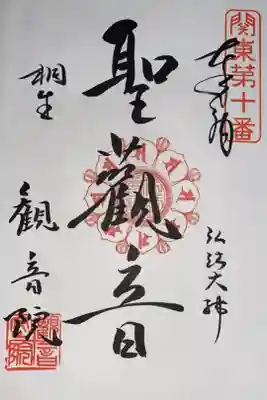 関東第十番
奉拝
弘法大師
聖觀音
桐生
観音院